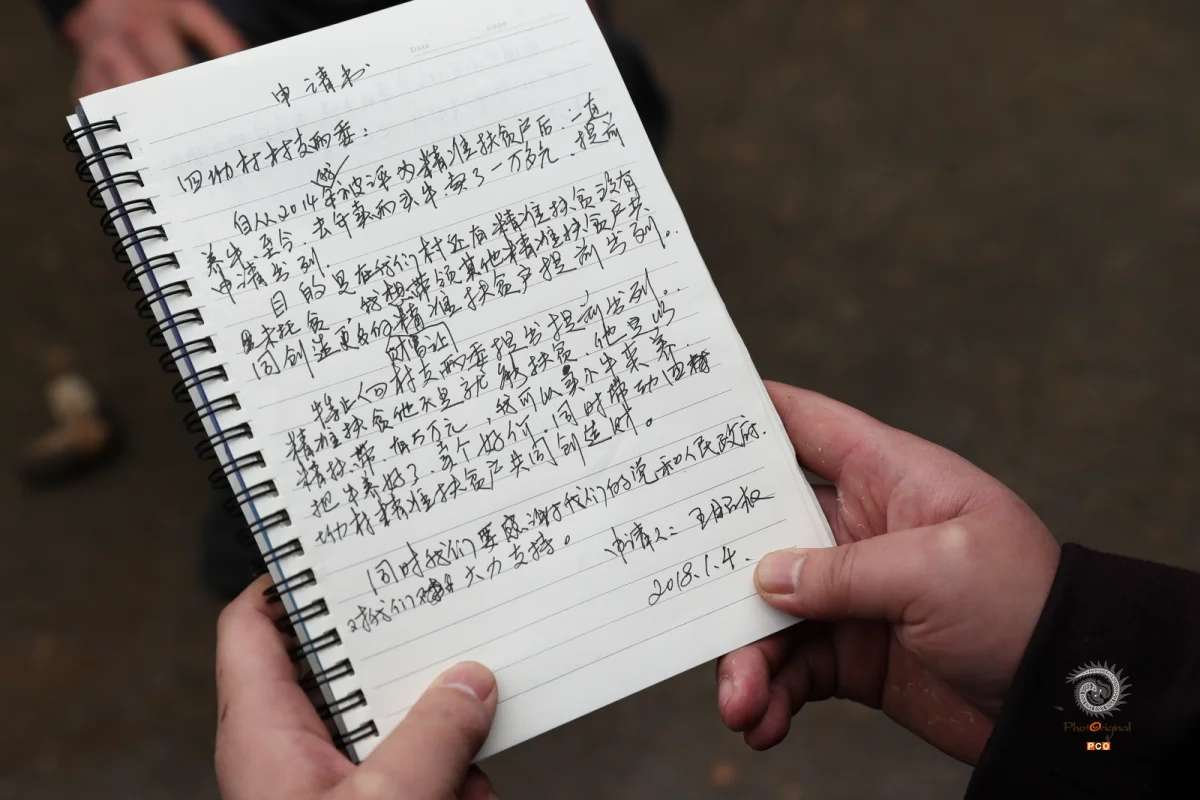 Date
Page
申请书
四坳村村支两委：
自从2014年被评为精准扶贫户后，一直
养牛至今，去年卖两头牛，卖了一万多元，提前
申请出列
目的是在我们村还有精准扶贫没有
未脱贫，我想带领其他精准扶贫户共
同创造更多的精准扶贫户提前出列。
特此向村支两委提出提前出列。
精准扶贫他不是
万元，我可以买个牛来养，
把牛养好了，卖个好价，同时带动四
坳村精准扶贫户共同创造财。
同时我们要感谢我们的党和人民政府
对我们大力支持。
申请人：王
2018.1.4.
PhotOriginal
PCO